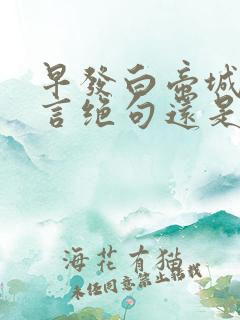 早發白帝城
言絕句還是
海花有猫
未经同意禁止转载